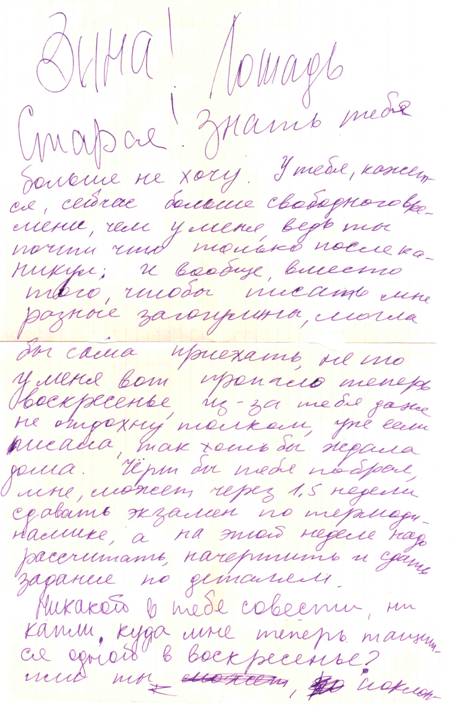 Зина! Лошадь
Старая! Знать тебя
больше не хочу. У тебя, кажет-
ся, сейчас больше свободного вре-
мени, чем у меня, ведь ты
почти что только после ка-
никул, и вообще, вместо
того, чтобы писать мне
разные загогулины, могла
бы сама приехать, не то
у меня вот пропало теперь
воскресенье, из-за тебя даже
не отдохну толком, уже если
писала, так хоть бы ждала
дома. Чёрт бы тебя побрал,
мне, может через 1,5 недели
сдавать экзамен по термоди-
намике, а на этой неделе надо
рассчитать, начертить и сдать
задание по деталям.
Никакой в тебе совести, ни
капли, куда мне теперь тащить-
ся одной в воскресенье?
или ты